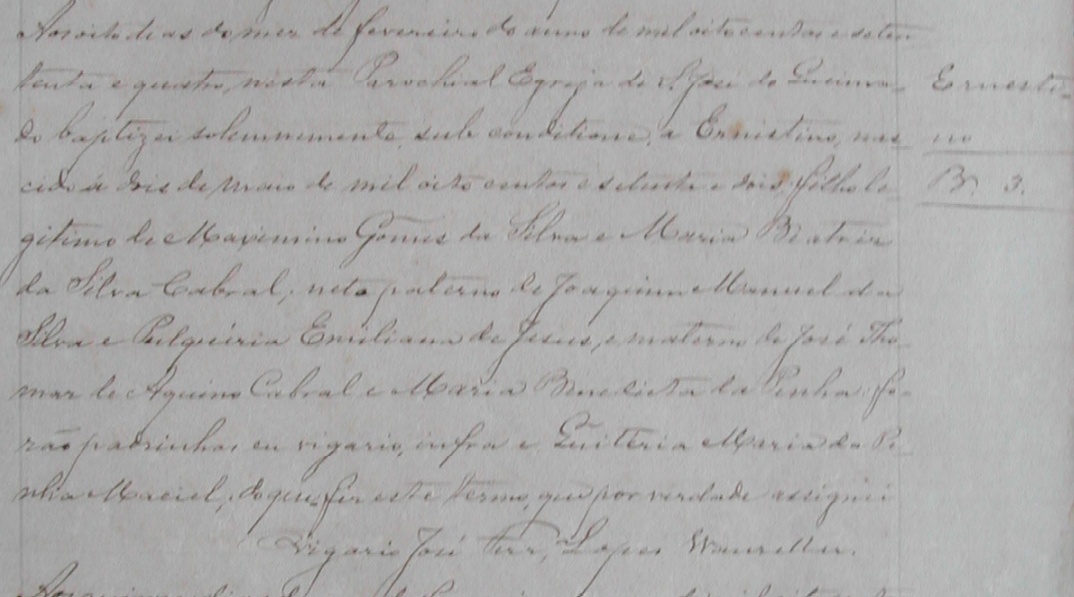 Aos oito dias do mez de fevereiro do anno de mil oitocentos e seten
tenta e quatro, nesta Parochial Egreja de S. José do Queima-
do baptizei solemnemente, sub conditione, a Ernestino, nas
cido á dois de maio de mil oito centos e setenta e dois, filho le
gitimo de Maximino Gomes da Silva e Maria Beatriz
da Silva Cabral; neto paterno de Joaquim Manuel da
Silva e Pulquéria Emiliana de Jesus, e materno de José Tho-
maz de Aquino Cabral e Maria Benedicta da Penha: fo-
rão padrinhos eu vigario, infra e Quitéria Maria da Pe-
nha Maciel; do que fiz este termo, que por verdade assignei
Vigario José Ferr. Lopes
Ernesti-
no
B. 3.